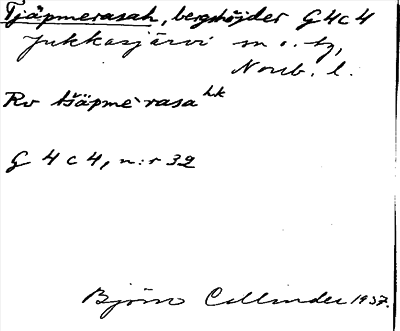 Tjäpmerasah, bergshöjder G4c4
Jukkasjärvi sn o. tg,
Norrb. l.
Rv tšäpmē rasa hk
G 4 c 4, n:r 32
Björn Collinder 1937.